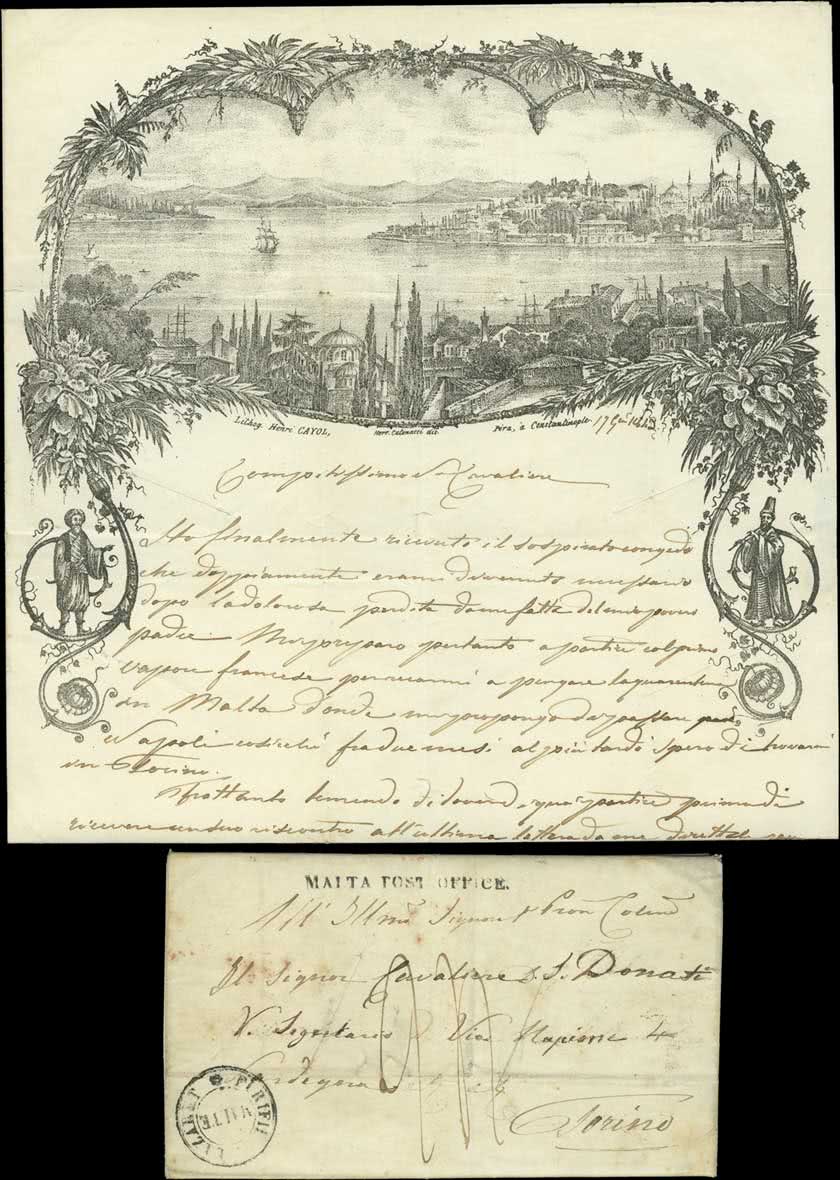 Lithog. Henri CAYOL, Pera, à Constantinople. 17
Compitissimo Sr. Cavaliere
Ho finalmente ricevuto il sospirato congedo
che doppiamente erami divenuto necessario
dopo la dolorosa perdita da me fatta del mio povero
padre. Mi preparo pertanto a partire col primo
vapore francese per recarmi a purgare la quarantena
in Malta donde mi propongo di passare per
Napoli cosicchè fra due mesi al più tardi spero di trovarmi
in Torino.
Frattanto temendo di dover quì partire prima di
ricevere un suo riscontro all'ultima lettera da me direttale
MALTA POST OFFICE.
All' Illmo Signore Pron Colmo
Il Signor Cavaliere Donati
V. Segretario
Torino
PURIFIÉ
LAZARET
MALTE